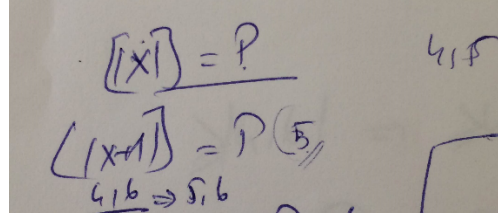 [|x|] = P
4,5
[|x+1|] = P (5
4,6 => 5,6